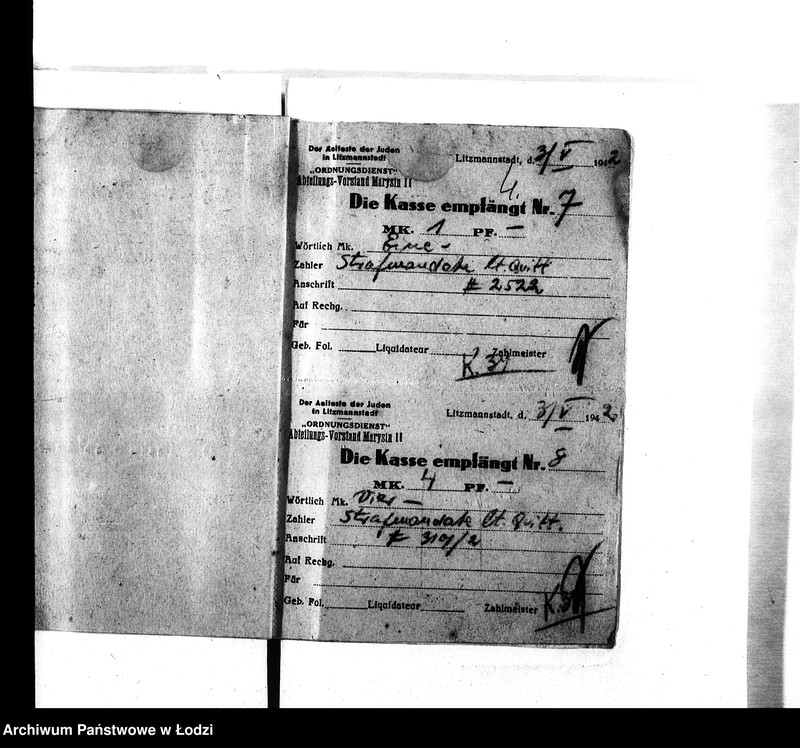 Der Aelteste der Juden
in Litzmannstadt
„ORDNUNGSDIENST“
Abteilungs-Vorstand Marysin II
Litzmannstadt, d. 3/V 1942
4.
Die Kasse empfängt Nr. 7
MK. 1 PF. —
Wörtlich Mk. Eine —
Zahler Strafmandate lt. Quitt
Anschrift # 2522
Auf Rechg.
Für
Geb. Fol. Liquidateur Zahlmeister
K. 31
Der Aelteste der Juden
in Litzmannstadt
„ORDNUNGSDIENST“
Abteilungs-Vorstand Marysin II
Litzmannstadt, d. 3/V 1942.
Die Kasse empfängt Nr. 8
MK. 4 PF. —
Wörtlich Mk. Vier —
Zahler Strafmandate lt. Quitt.
Anschrift
Auf Rechg.
Für
Geb. Fol. Liquidateur Zahlmeister
Archiwum Państwowe w Łodzi